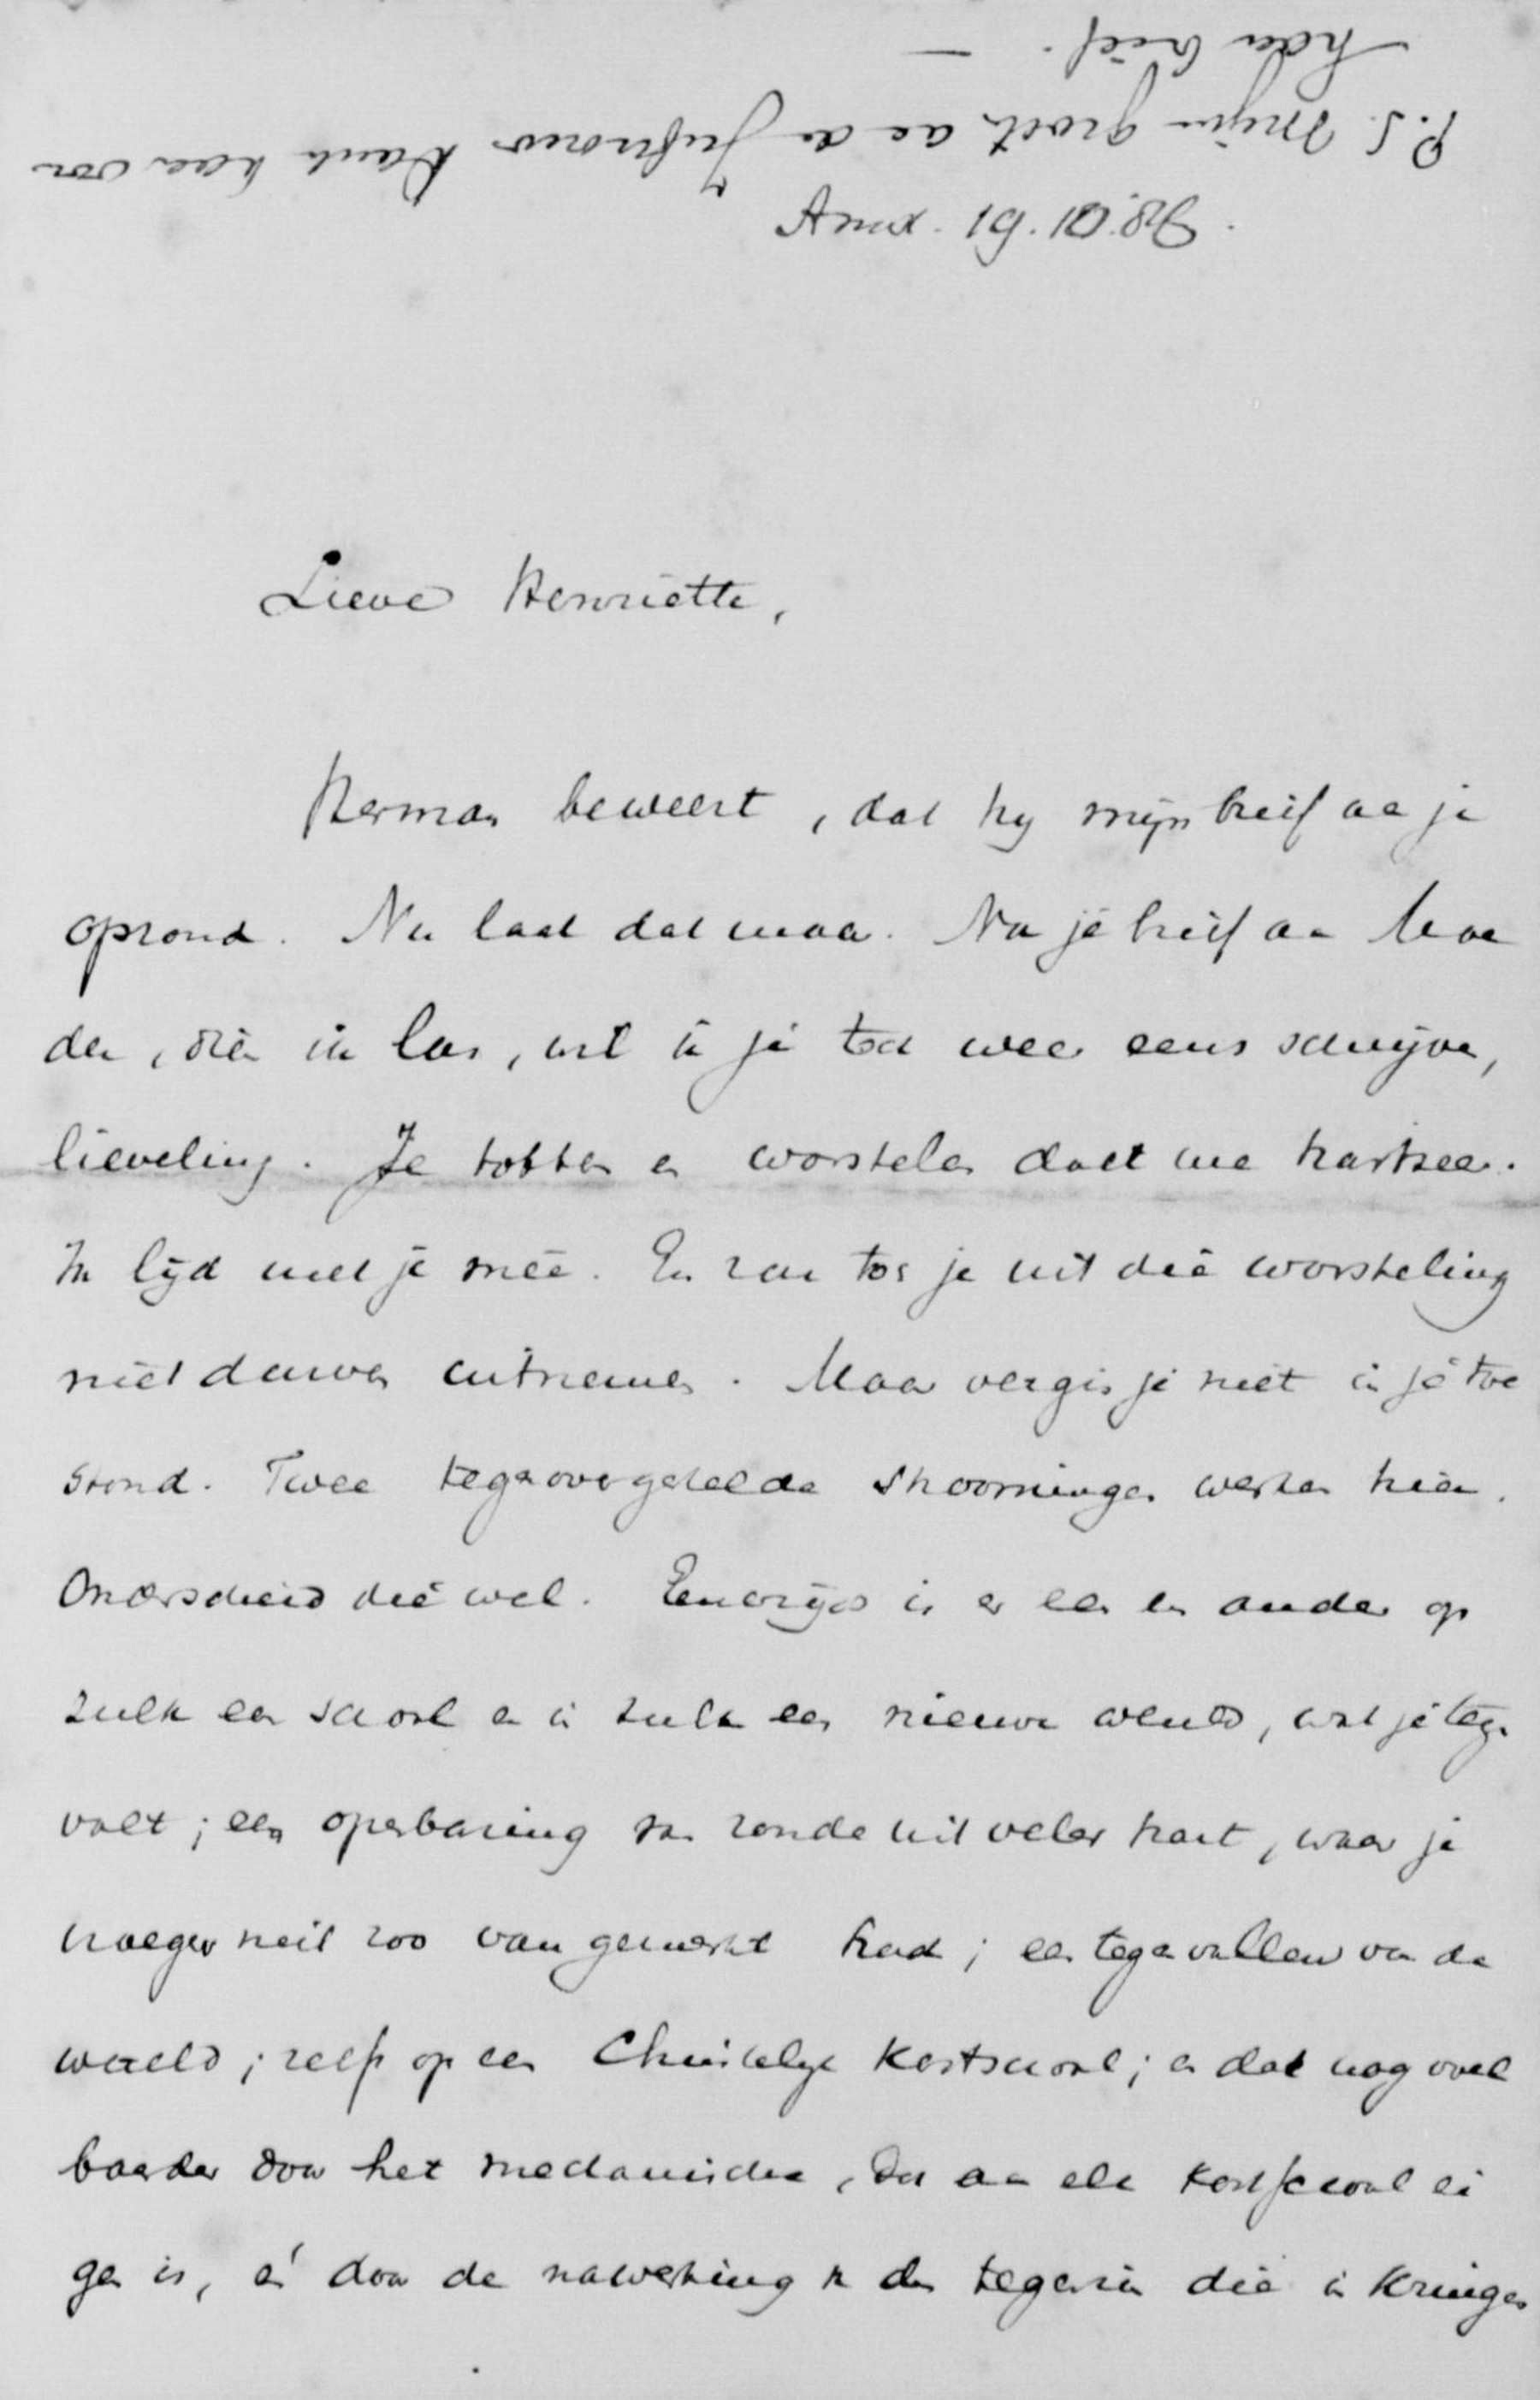 P.S. Mijn groet aa de Juffrouw Dank haar voor
haar brief. —
Amst. 19.10.86
Lieve Henriëtte,
Herman beweert, dat hy mijn brief aa je
opzond. Nu laat dat maar. Na je brief aa Moe
der, dien ik las, wil ik je toch weer eens schrijven,
lieveling. Je tobben en worstelen doet me hartzeer.
Ik lijd met je mee. En zou toch je uit die worsteling
niet durven uitnemen. Maar vergis je niet in je toe
stand. Twee tegenovergestelde stroomingen werken hier.
Onderscheid die wel. Eenerzijds is er een en ander op
zulk een school en in zulk een nieuwe wereld, wat je tegen
valt; een openbaring van zonde uit veler hart, waar je
vroeger niet zoo van gemerkt had; een tegenvallen van de
wereld; zelfs op een Christelijke Kostschool; en dat nog voel
baarder door het mechanische, dat aan elke kostschool ei
gen is, en door de nawerking van den tegenzin die in Kringen